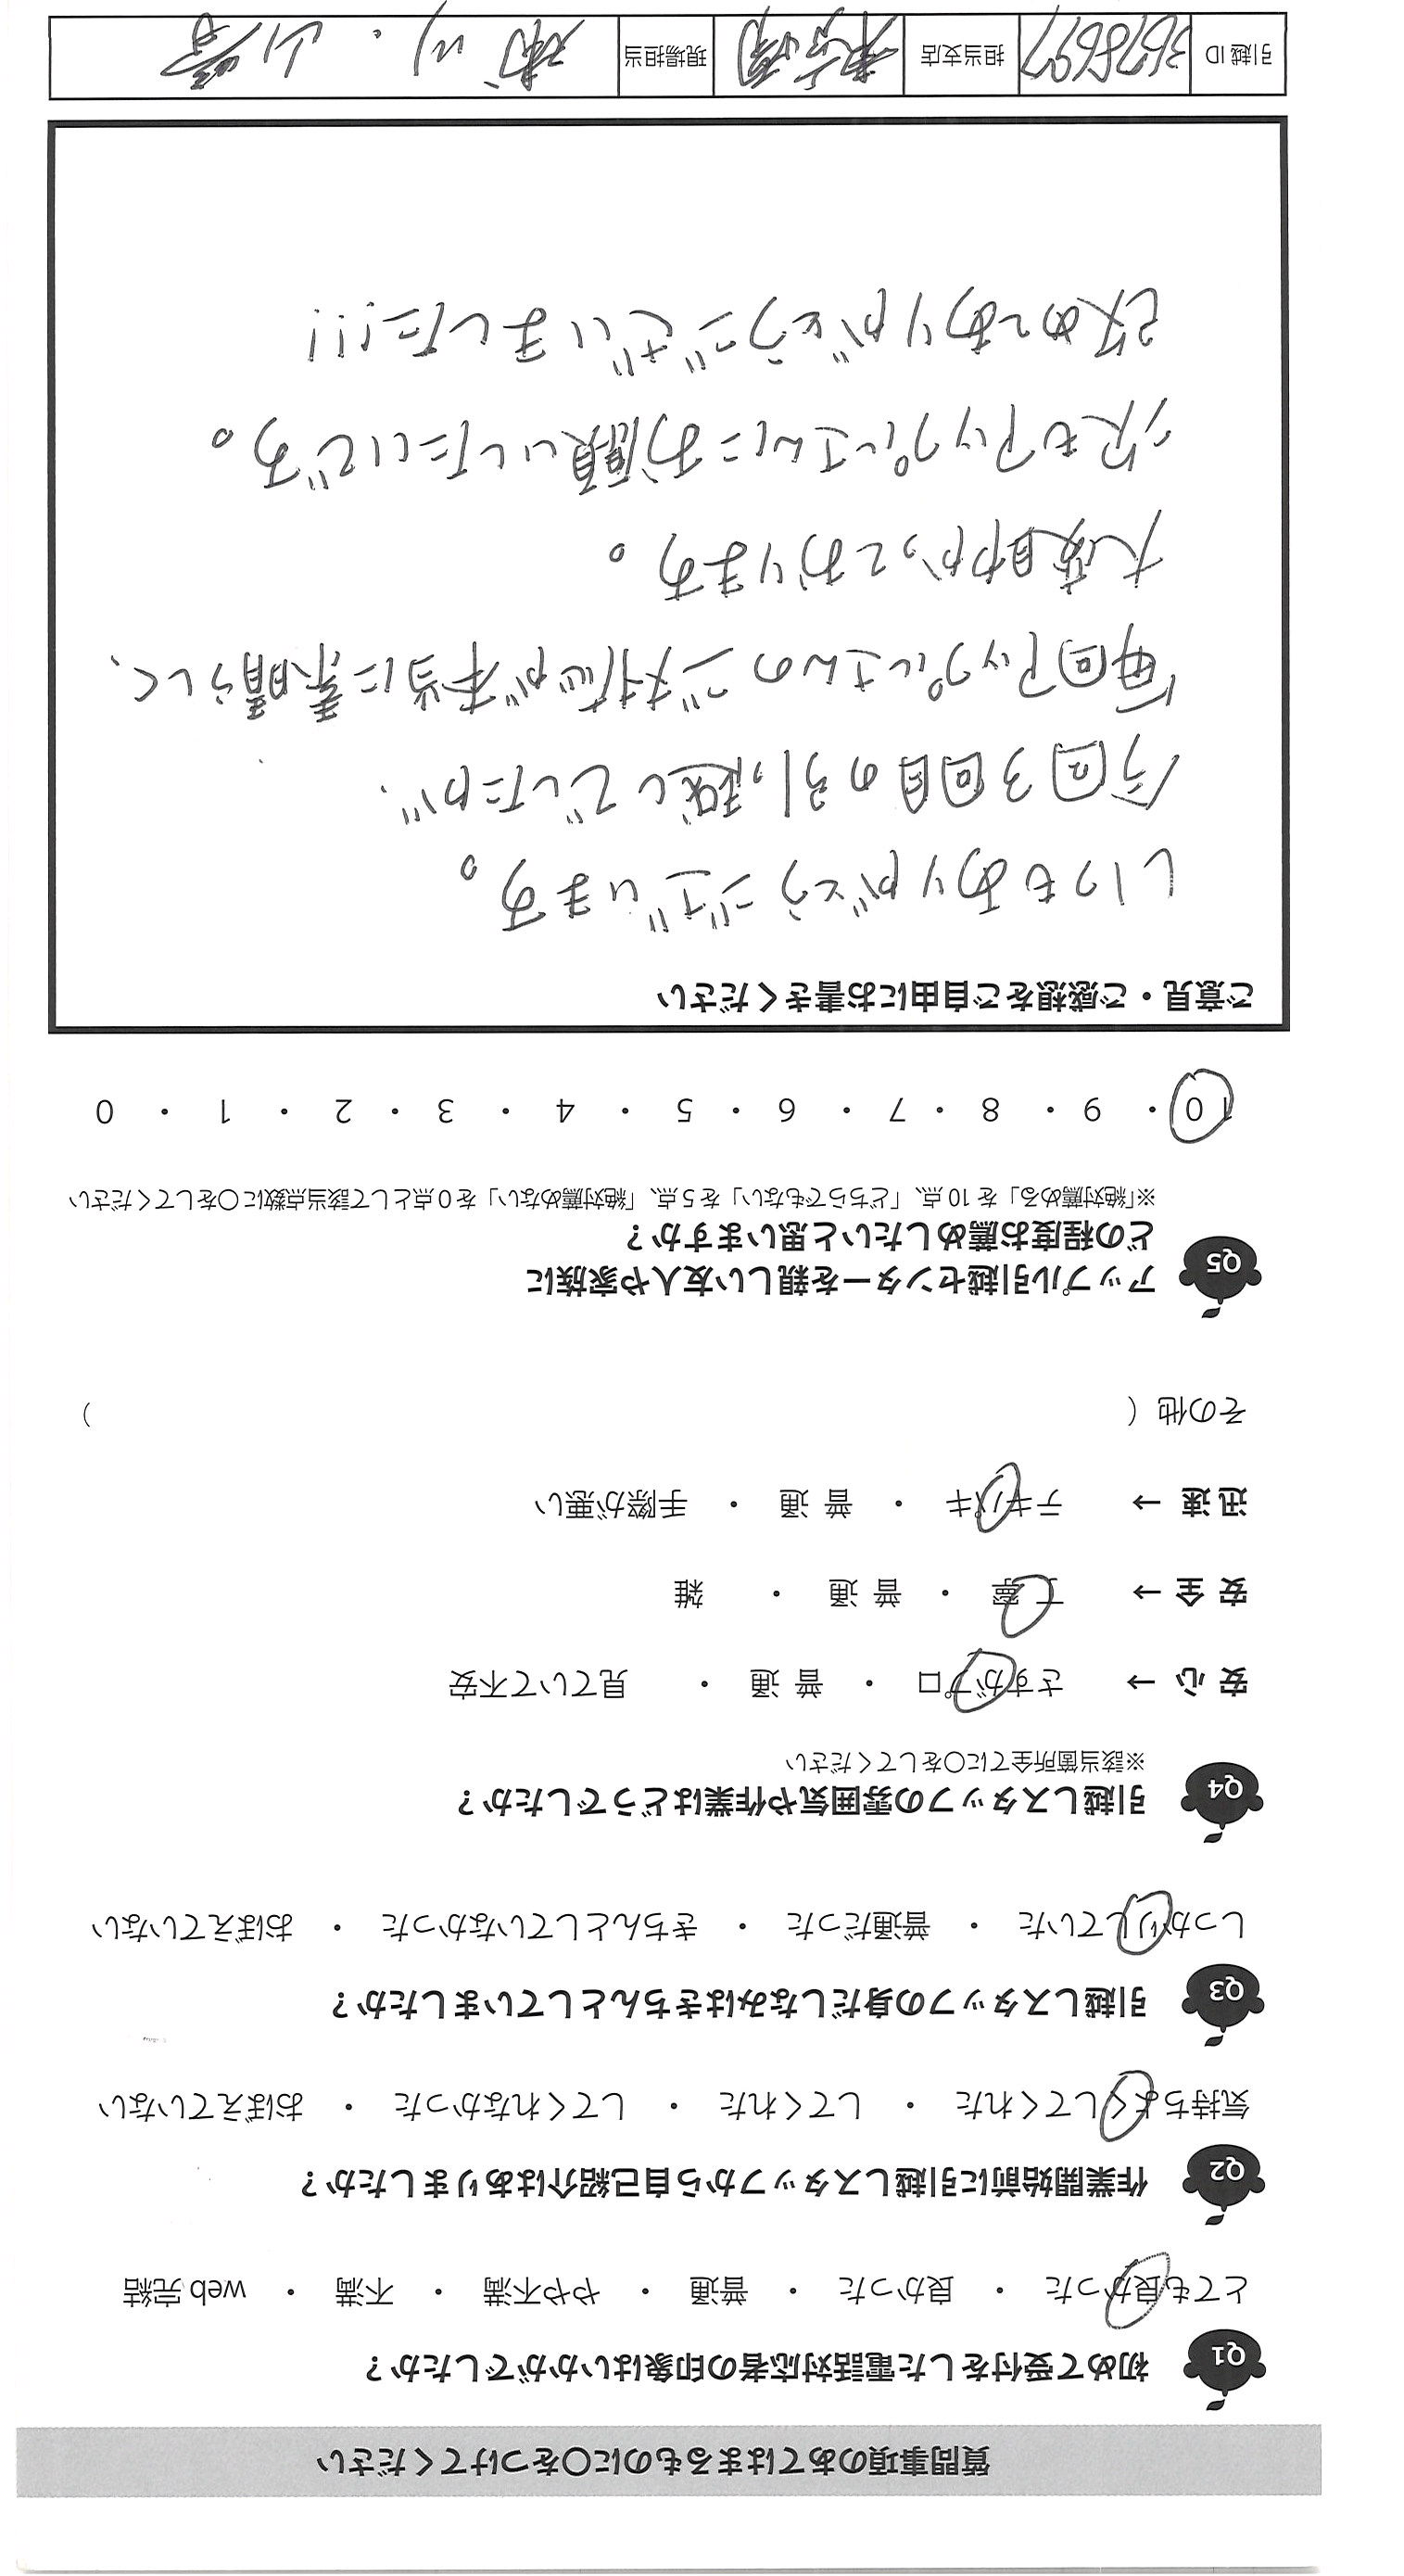 質問事項のあてはまるものに〇をつけてください
Q1 初めて受付をした電話対応者の印象はいかがでしたか？
とても良かった ・ 良かった ・ 普通 ・ やや不満 ・ 不満 ・ web 完結
Q2 作業開始前に引越しスタッフから自己紹介はありましたか？
気持ちよくしてくれた ・ してくれた ・ してくれなかった ・ おぼえていない
Q3 引越しスタッフの身だしなみはきちんとしていましたか？
しっかりしていた ・ 普通だった ・ きちんとしていなかった ・ おぼえていない
Q4 引越しスタッフの雰囲気や作業はどうでしたか？
※該当箇所全てに〇をしてください
安 心 → さすがプロ ・ 普 通 ・ 見ていて不安
安 全 → 丁 寧 ・ 普 通 ・ 雑
迅 速 → テキパキ ・ 普 通 ・ 手際が悪い
その他（ ）
Q5 アップル引越センターを親しい友人や家族に
どの程度お薦めしたいと思いますか？
※「絶対薦める」を 10 点、「どちらでもない」を 5 点、「絶対薦めない」を 0 点として該当点数に〇をしてください
10 ・ 9 ・ 8 ・ 7 ・ 6 ・ 5 ・ 4 ・ 3 ・ 2 ・ 1 ・ 0
ご意見・ご感想をご自由にお書きください
いつもありがとうございます。
今回3回目の引っ越しでしたが、
毎回アップルさんのご対応が本当に素晴らしく、
大変助かっております。
次もアップルさんにお願いしたいです。
改めてありがとうございました!!!
引越 ID 3678697 担当支店 現場担当